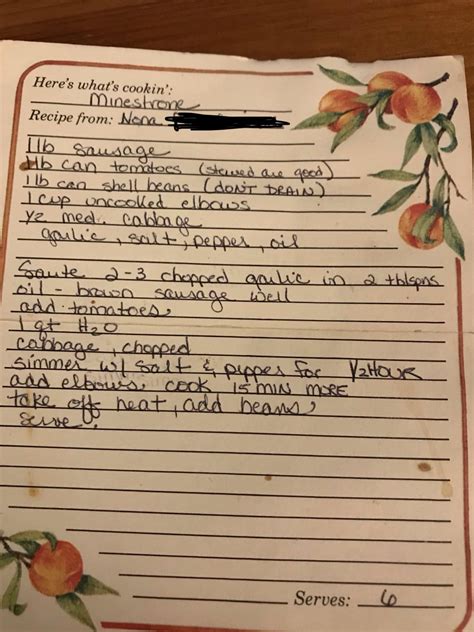 Here's what's cookin':
Minestrone
Recipe from: Nona
1 lb sausage
1 lb can tomatoes (stewed are good)
1 lb can shell beans (DON'T DRAIN)
1 cup uncooked elbows
1/2 med. cabbage
garlic, salt, pepper, oil
Saute 2-3 chopped garlic in 2 tblspns
oil - brown sausage well
add tomatoes
1 qt H2O
cabbage, chopped
simmer w/ salt & pepper for 1/2 HOUR
add elbows, cook 15 MIN MORE
take off heat, add beans,
serve.
Serves: 6